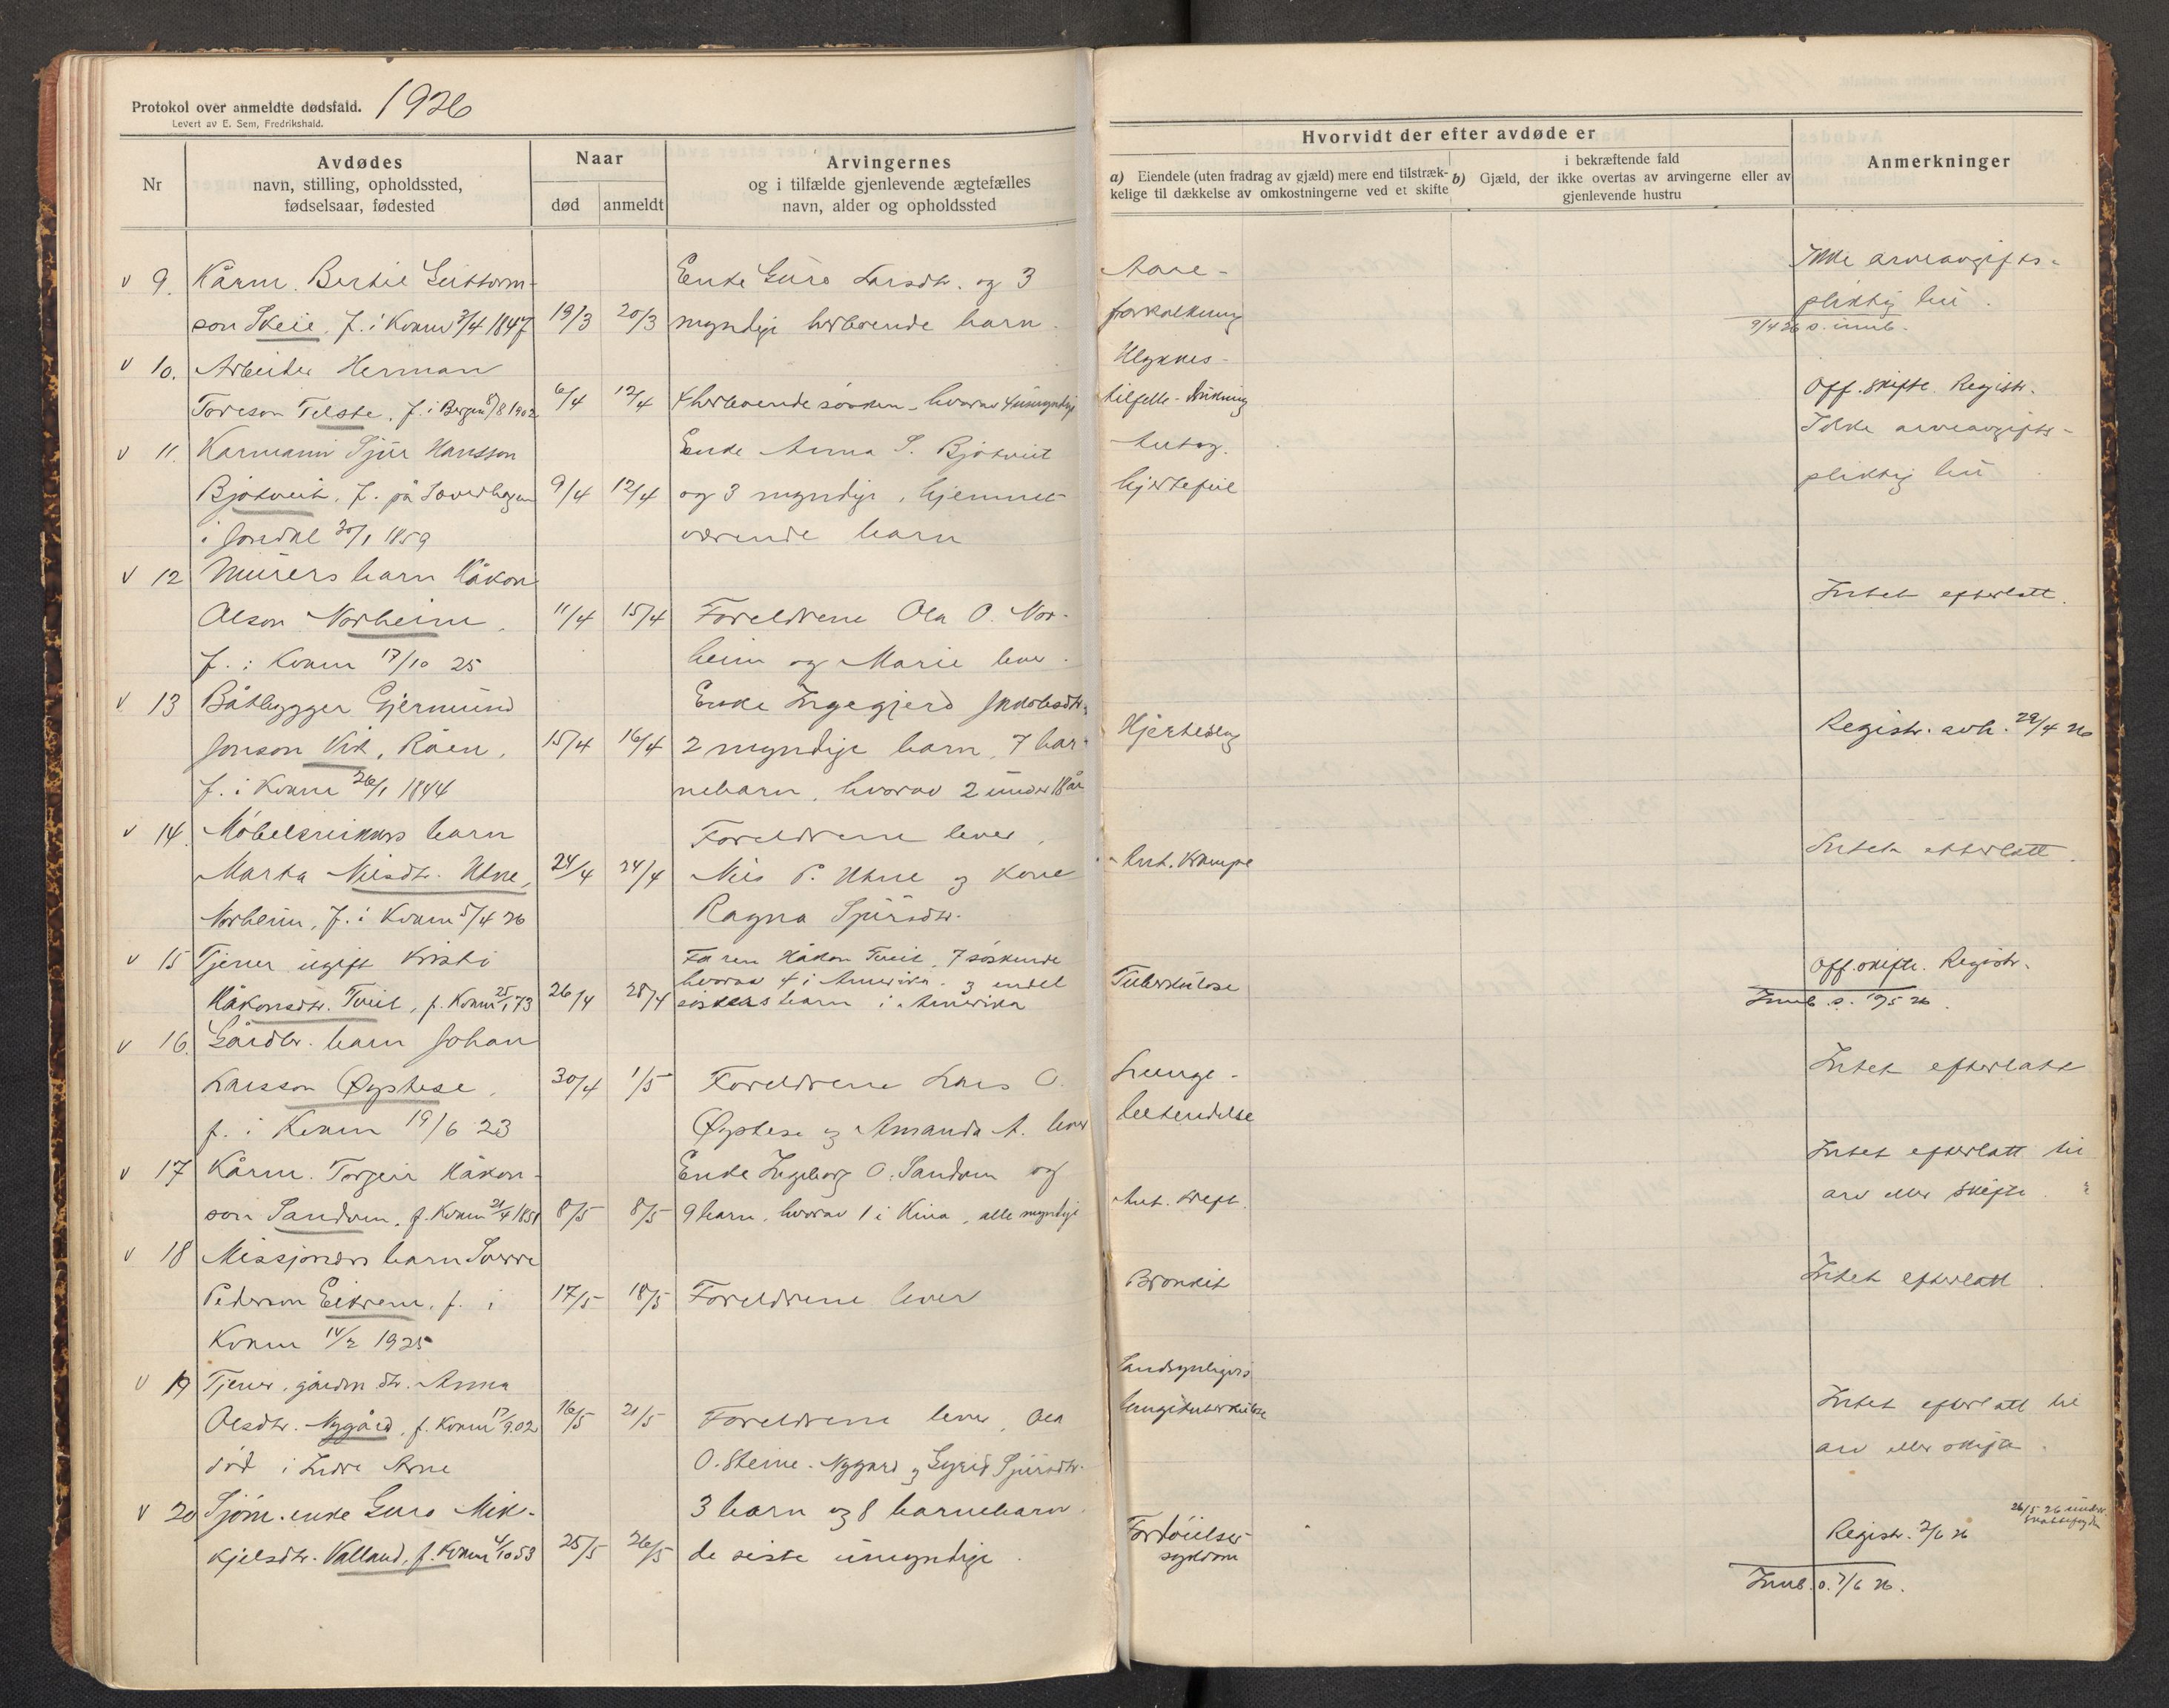 Protokol over anmeldte dødsfald. 1926
Levert av E. Sem, Fredrikshald.
Nr
Avdødes
navn, stilling, opholdssted,
fødselsaar, fødested
Naar
død
anmeldt
Arvingernes
og i tilfælde gjenlevende ægtefælles
navn, alder og opholdssted
Hvorvidt der efter avdøde er
a) Eiendele (uten fradrag av gjæld) mere end tilstræk-
kelige til dækkelse av omkostningerne ved et skifte
b) i bekræftende fald
Gjæld, der ikke overtas av arvingerne eller av
gjenlevende hustru
Anmerkninger
v 9. Kårm. Bertil Guttorm- Enke Guro Larsdtr. og 3 Aare- Ikke arveavgifts-
son Skeie, f. i Kvam 3/4 1847 19/3 20/3 myndige herboende barn. forkalkning pliktig bu.
9/4 26 s. innb.
v 10. Arbeider Herman Ulykkes-
Toreson Telste, f. i Bergen 8/8 1902 6/4 12/4 4 herboende søsken - hvorav 4 umyndige tilfelle - drukning Off. skifte. Registr.
v 11. Kårmann Sjur Hansson Enke Anna S. Bjotveit Antag. Ikke arveavgifts-
Bjotveit, f. på Soverhagen 9/4 12/4 og 3 myndige, hjemme- hjertefeil pliktig bu
i Jondal 30/1 1859 værende barn
v 12 Murers barn Håkon
Olson Norheim, 11/4 15/4 Foreldrene Ola O. Nor- Intet efterlatt.
f. i Kvam 17/10 25 heim og Marie lever.
v 13 Båtbygger Gjermund Enke Ingegjerd Jakobsdtr.
Jonson Vik, Råen, 15/4 16/4 2 myndige barn, 7 bar- Hjerteslag Registr. avh. 29/4 26
f. i Kvam 26/1 1844 nebarn, hvorav 2 under 18 år
v 14. Møbelsnikkers barn Foreldrene lever,
Marta Nilsdtr. Utne, 24/4 24/4 Nils P. Utne og kone Ant. krampe Intet efterlatt.
Norheim, f. i Kvam 5/4 26 Ragna Sjursdtr.
v 15 Tjener ugift Kristi Faren Håkon Tveit, 7 søskende Off. skifte. Registr.
hvorav 4 i Amerika. og endel
Håkonsdtr. Tveit, f. Kvam 25/1 73 26/4 28/4 søskens barn i Amerika Tuberkulose Innb. s. 19/5 26.
v 16. Gårdbr. barn Johan
Larsson Øystese, 30/4 1/5 Foreldrene Lars O. Lunge- Intet efterlatt
f. i Kvam 19/6 23 Øystese og Amanda A. lever betendelse
v 17 Kårm. Torgeir Håkon- Enke Ingeborg O. Sandven og Intet efterlatt til
son Sandven, f. Kvam 21/4 1851 8/5 8/5 9 barn, hvorav 1 i Kina, alle myndige Ant. kreft. arv eller skifte.
v 18 Missjonærs barn Sverre
Pederson Eikrem, f. i 17/5 18/5 Foreldrene lever Bronkit Intet efterlatt.
Kvam 14/2 1925
v 19 Tjener, gårdm. dtr. Anna Sandsynligvis
Olsdtr. Nygård, f. Kvam 17/9 02 16/5 21/5 Foreldrene lever, Ola lungetuberkulose Intet efterlatt til
død i Indre Arne O. Steine-Nygård og Gyrid Sjursdtr. arv eller skifte.
v 20 Sjøm. enke Guro Mik- 3 barn og 8 barnebarn Fordøielses- 26/5 26 underr.
skattefogden
kjelsdtr. Valland, f. Kvam 4/10 53 25/5 26/5 de siste umyndige. sygdom Registr. 2/6 26
Innb. s. 7/6 26.